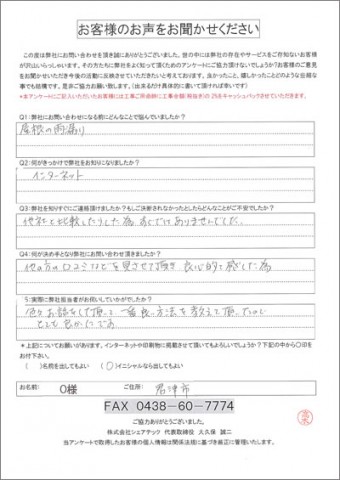 お客様のお声をお聞かせください
この度は弊社にお問い合わせを頂き誠にありがとうございました。世の中には弊社の存在やサービスをご存知ないお客様
が沢山いらっしゃいます。その方たちに弊社をよく知って頂くためのアンケートにご協力頂けないでしょうか?ご意見
をお聞かせいただき今後の活動に反映させていただきたいと考えております。良かったこと、嬉しかったことのような些細な
事でも結構です。是非ご協力お願い致します。(出来るだけ具体的に書いて頂ければ幸いです)
*本アンケートにご記入いただいたお客様には工事ご用命時に工事金額(税抜き)の2%をキャッシュバックさせていただきます。
Q1:弊社にお問い合わせになる前にどんなことで悩んでいましたか?
屋根の雨漏り
Q2:何がきっかけで弊社をお知りになりましたか?
インターネット
Q3:弊社を知りすぐにご連絡頂けましたか?もしご決断されなかったとしたらどんなことがご不安でしたか?
他社と比較したりした為 すぐではありませんでした。
Q4:何が決め手となり弊社にお問い合わせ頂きましたか?
他の方の口コミなどを見させて頂き 良心的と感じた為
5:実際に弊社担当者がお伺いしていかがでしたか?
色々お話をして頂いて 一番良い方法を教えて頂いたのでとても
*上記についてお願いがあります。インターネットや印刷物に掲載させて頂いてもよろしいでしょうか?下記の中から〇印を
お付下さい。
( )名前を出してもよい (〇)イニシャルなら出してもよい
お名前: O様 ご住所: 君津市
FAX 0438-60-7774
ご協力ありがとうございました。
株式会社シェアテック 代表取締役 大久保 誠二
当アンケートで取得したお客様の個人情報は関係法規に基づき厳正に管理いたします。